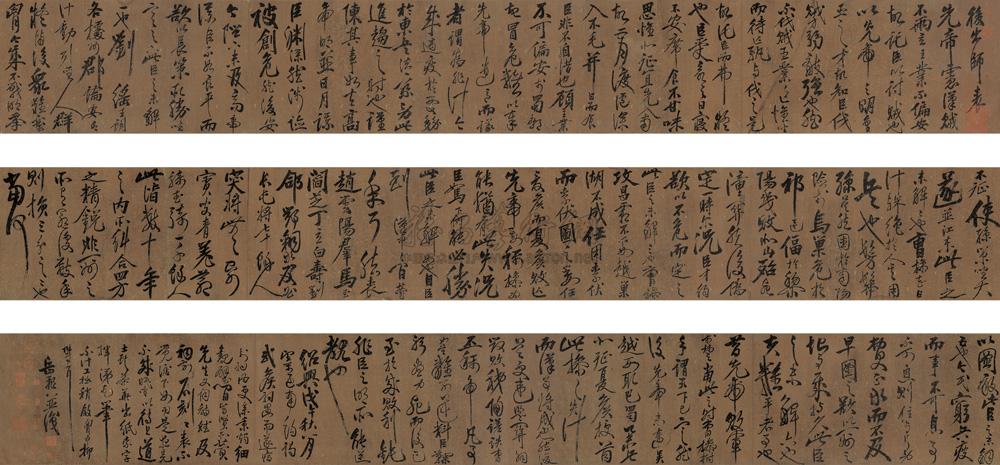 後出師表
先帝慮漢賊
不兩立王業不偏安
故託臣以討賊也
以先帝之明量
臣之才故知臣伐
賊才弱敵強也然
不伐賊王業亦亡惟坐
而待亡孰與伐之是
故託臣而弗疑
也臣受命之日寢
不安席食不甘味
思惟北征宜先入南
故五月渡瀘深
入不毛并日而食
臣非不自惜也顧王業
不可偏安於蜀都
故冒危難以奉
先帝之遺意而議
者謂爲非計今
賊適疲於西又務
於東兵法乘勞此
進趨之時也謹
陳其事如左高
帝明並日月謀
臣淵深然涉險
被創危然後安
今陛下未及高帝
謀臣不如良平而
欲以長策取勝坐
定天下此臣之未解一
也劉繇王朗
各據州郡論安言
計動引聖人群
疑滿腹眾難塞
胸今歲不戰明年
不征使孫策坐大
遂並江東此臣之
未解二也曹操智
計殊絕於人其用
兵也髣髴
孫吳然困於南陽
險於烏巢危於
祁連偪於黎
陽幾敗北山殆死
潼關然後偽
定一時爾況臣才弱
欲以不危而定之
此臣之未解三也曹操五
攻昌霸不下四越巢
湖不成任用李服
而李服圖之委任
夏侯而夏侯敗亡
先帝每稱操爲
能猶有此失況
臣駑下何能必勝
此臣之未解四也自臣
到漢中中間朞
年耳然喪
趙雲陽群馬玉
閻芝丁立白壽劉
郃鄧銅等及曲
長屯將七十餘人
突將無前
賨叟青羌散
騎武騎一千餘人
此皆數十年
之內所糾合四方
之精銳非一州之
所有若復數年
則損三分之二也
當何
以圖敵此臣之未解
五也今民窮兵疲
而事不可息事
不可息則住與行勞
費正等而不及
早圖之欲以一州
之地與賊持久此臣
之未解六也
夫難平者事也
昔先帝敗軍
於楚當此時曹操拊
手謂天下已定然
後先帝東連吳
越西取巴蜀舉兵
北征夏侯授首
此操之失計
而漢事將成也然後
吳更違盟關羽
毀敗秭歸蹉跌曹
丕稱帝凡事
如是難可逆料臣鞠
躬盡力死而後已
至於成敗利鈍
非臣之明所能逆
覩也
紹興戊午秋八月
望前過南陽謁
武侯祠遇雨遂宿
於祠內更深秉燭細
觀壁間昔賢所贊
先生文詞詩賦及
祠前石刻二表不
覺淚下如雨是夜竟
不成眠坐以待旦道
士獻茶畢出紙索字
揮涕走筆
不計工拙稍舒胸中抑
鬱耳
岳飛並識